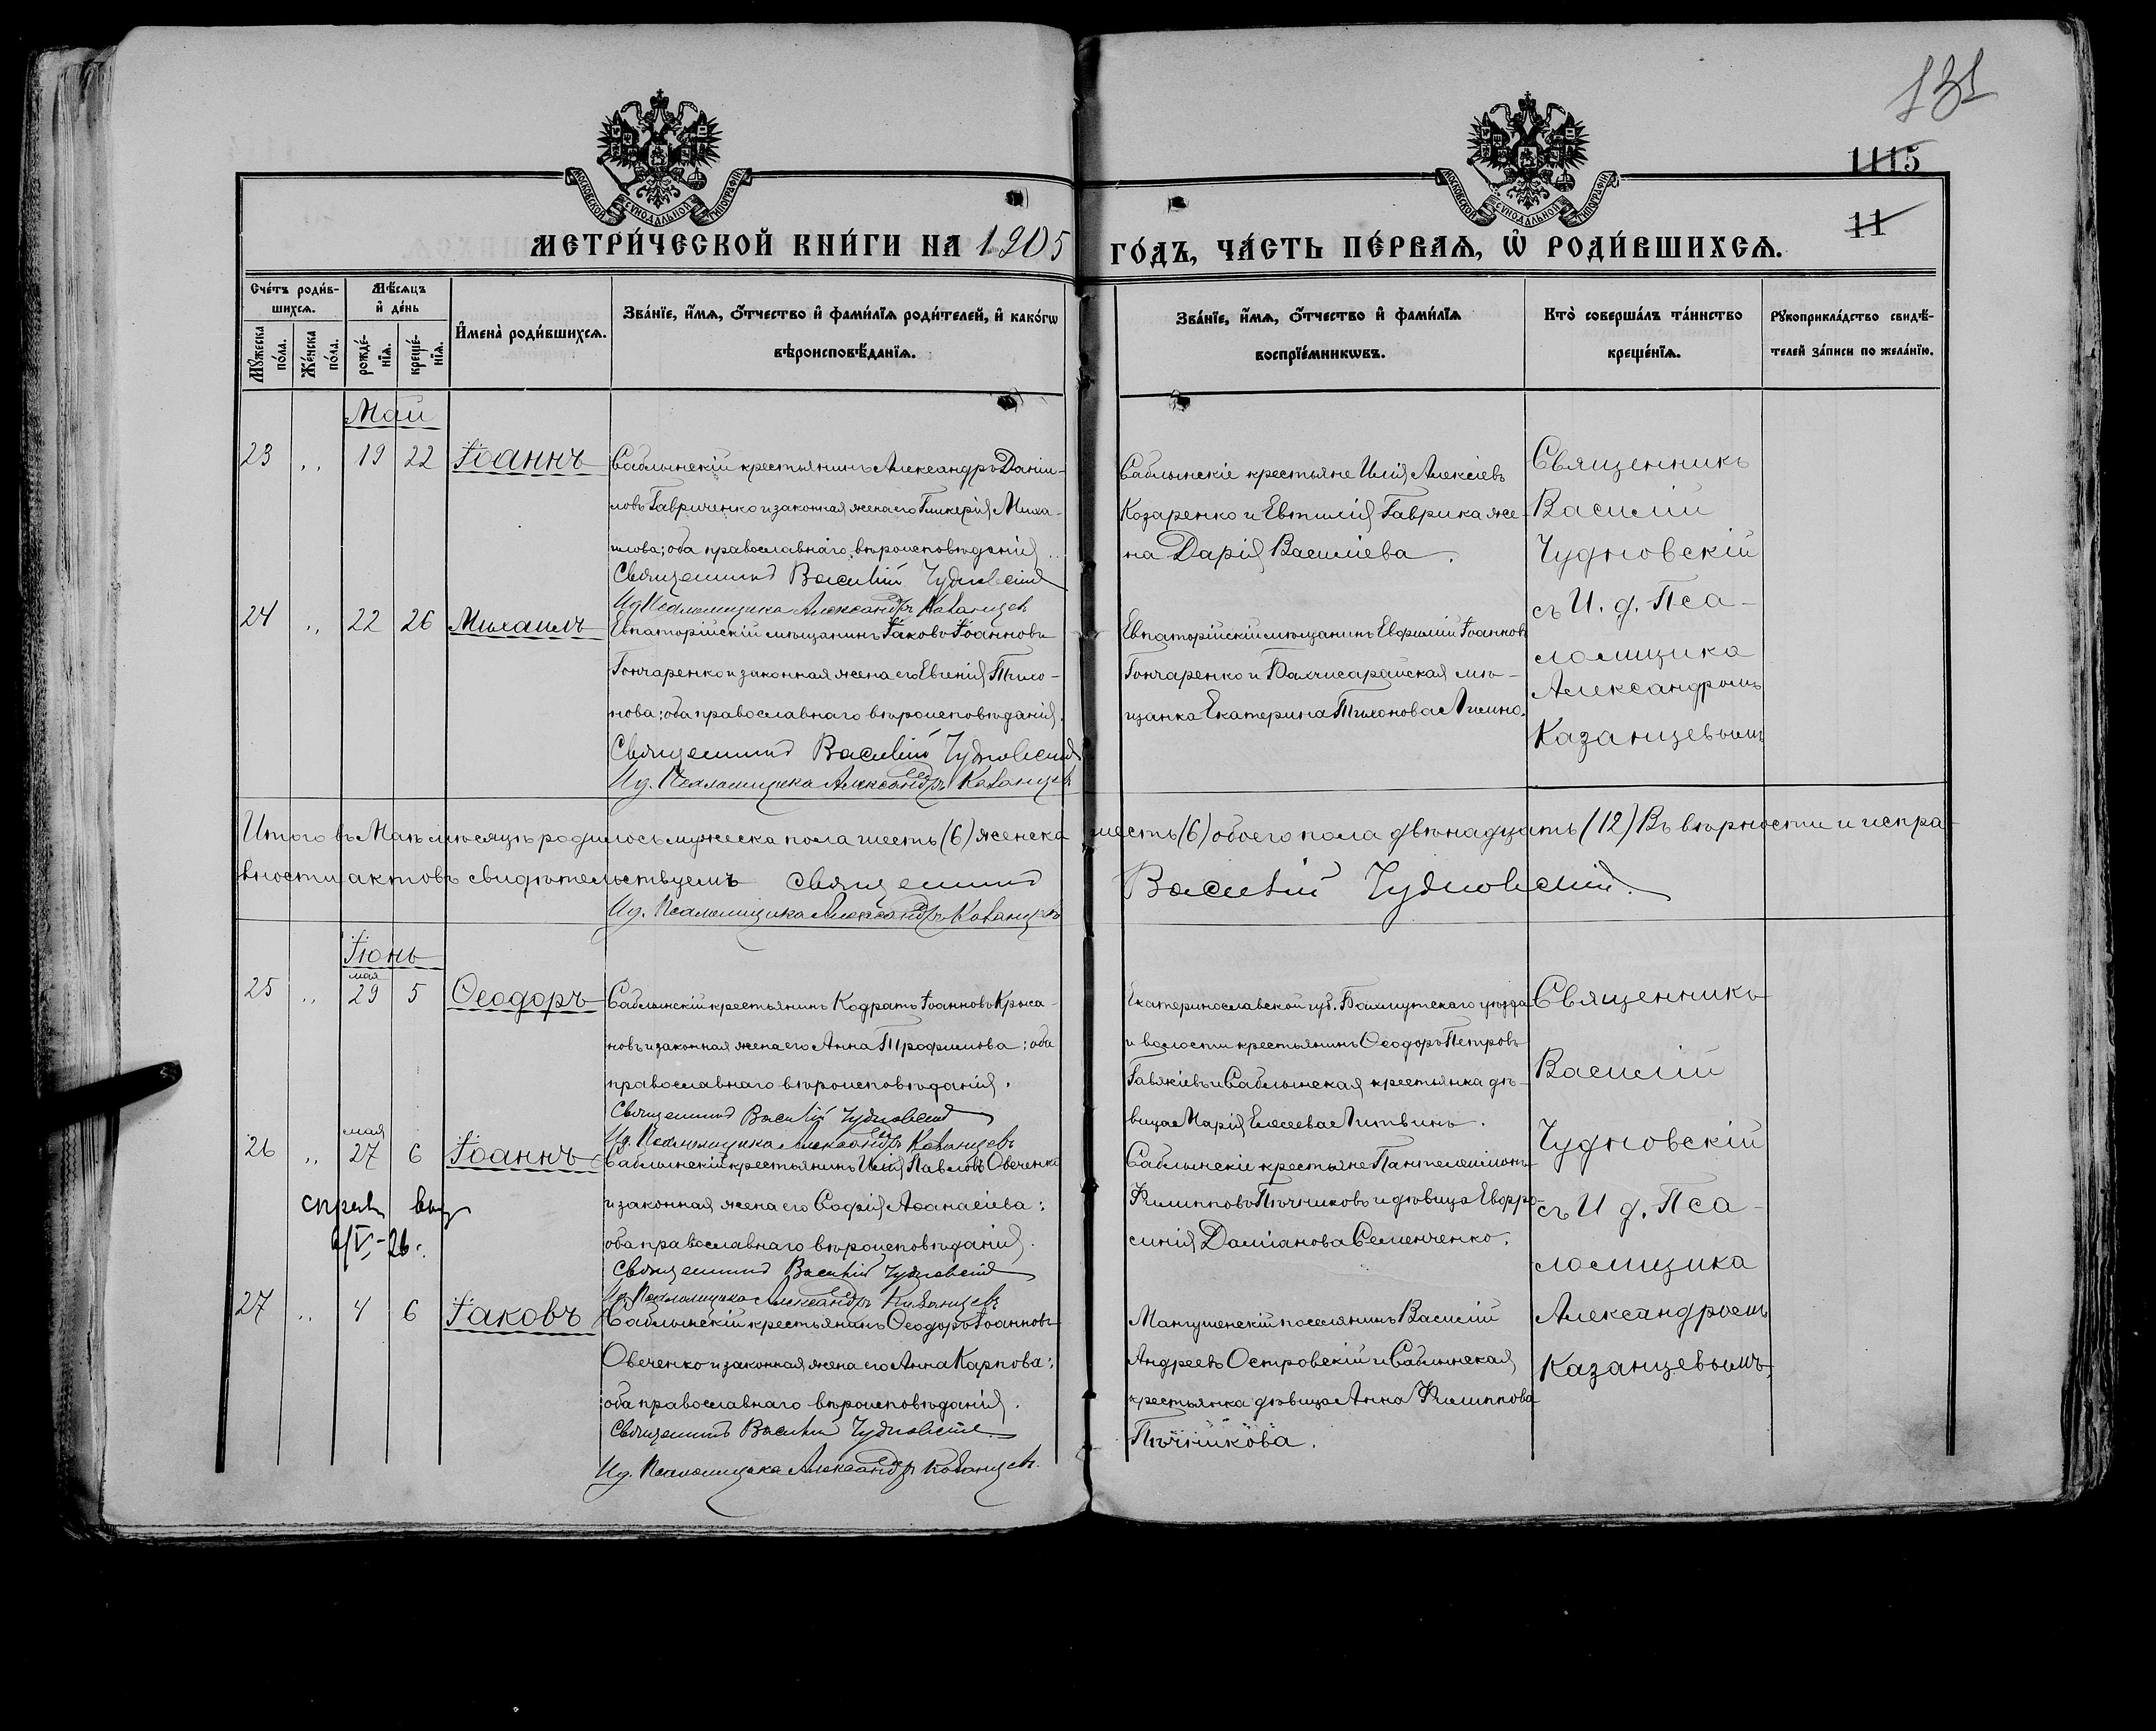 131
1115
11
МОСКОВСКОЙ СѴНОДАЛЬНОЙ ТИПОГРАФІИ
МОСКОВСКОЙ СѴНОДАЛЬНОЙ ТИПОГРАФІИ
МЕТРИ́ЧЕСКОЙ КНИ́ГИ НА 1905 ГО́ДЪ, ЧА́СТЬ ПЕ́РВАѦ, Ѽ РОДИ́ВШИХСѦ.
Сче́тъ роди́в-
шихсѧ.
Мꙋ́жеска по́ла.
Же́нска по́ла.
Мѣ́сѧцъ
и҆ де́нь
рожде́-
нїѧ.
креще́-
нїѧ.
И҆мена̀ роди́вшихсѧ.
Зва́нїе, и҆́мѧ, ѻ҆́тчество и҆ фами́лїѧ роди́телей, и҆ како́гѡ
вѣроисповѣ́данїѧ.
Зва́нїе, и҆́мѧ, ѻ҆́тчество и҆ фами́лїѧ
воспрїе́мникѡвъ.
Кто̀ соверша́лъ та́инство
креще́нїѧ.
Рꙋкоприкла́дство свидѣ́-
телей за́писи по жела́нїю.
Май
23 „ 19 22 Іоаннъ
Саблынскій крестьянинъ Александръ Даніи-
ловъ Гавриченко и законная жена его Гликерія Миха-
илова; оба православнаго вѣроисповѣданія.
Священникъ Василій Чудновскій
И д Псаломщика Александръ Казанцевъ
Саблынскіе крестьяне Илія Алексіевъ
Козаренко и Евтилія Гаврика же-
на Дарія Василіева.
Священникъ
Василій
Чудновскій
съ И. д. Пса-
ломщика
Александромъ
Казанцевымъ
24 „ 22 26 Михаилъ
Евпаторійскій мѣщанинъ Іаковъ Іоанновъ
Гончаренко и законная жена его Евгенія Тихо-
нова; оба православнаго вѣроисповѣданія.
Священникъ Василій Чудновскій
И д. Псаломщика Александръ Казанцевъ
Евпаторійскій мѣщанинъ Евфимій Іоанновъ
Гончаренко и Бахчисарайская мѣ-
щанка Екатерина Тихонова
Итого въ Маѣ мѣсяцѣ родилось мужеска пола шесть (6) женска шесть (6) обоего пола двѣнадцать (12) Въ вѣрности и испра-
вности актовъ свидѣтельствуемъ Священникъ Василій Чудновскій.
И д. Псаломщика Александръ Казанцевъ
Іюнь
25 „ мая 29 5 Ѳеодоръ
Саблынскій крестьянинъ Кодратъ Іоанновъ Крыса-
новъ и законная жена его Анна Трофимова; оба
православнаго вѣроисповѣданія.
Священникъ Василій Чудновскій
И д. Псаломщика Александръ Казанцевъ
Екатеринославской губ. Бахмутскаго уѣзда
и волости крестьянинъ Ѳеодоръ Петровъ
и Саблынская крестьянка дѣ-
вица Марія Елисеева Литвинъ.
Священникъ
Василій
Чудновскій
съ И д. Пса-
ломщика
Александромъ
Казанцевымъ
26 „ мая 27 6 Іоаннъ
Саблынскій крестьянинъ Илія Павловъ Овеченко
и законная жена его Софія Аѳанасіева;
оба православнаго вѣроисповѣданія.
Священникъ Василій Чудновскій
И д. Псаломщика Александръ Казанцевъ
Саблынскіе крестьяне Пантелеимонъ
Филипповъ Пѣчниковъ и дѣвица Евфро-
синія Даміанова Семенченко.
27 „ 4 6 Іаковъ
Саблынскій крестьянинъ Ѳеодоръ Іоанновъ
Овеченко и законная жена его Анна Карпова;
оба православнаго вѣроисповѣданія.
Священникъ Василій Чудновскій
И д. Псаломщика Александръ Казанцевъ.
Мангушенскій поселянинъ Василій
Андреевъ Островскій и Саблынская
крестьянка дѣвица Анна Филиппова
Пѣчникова.